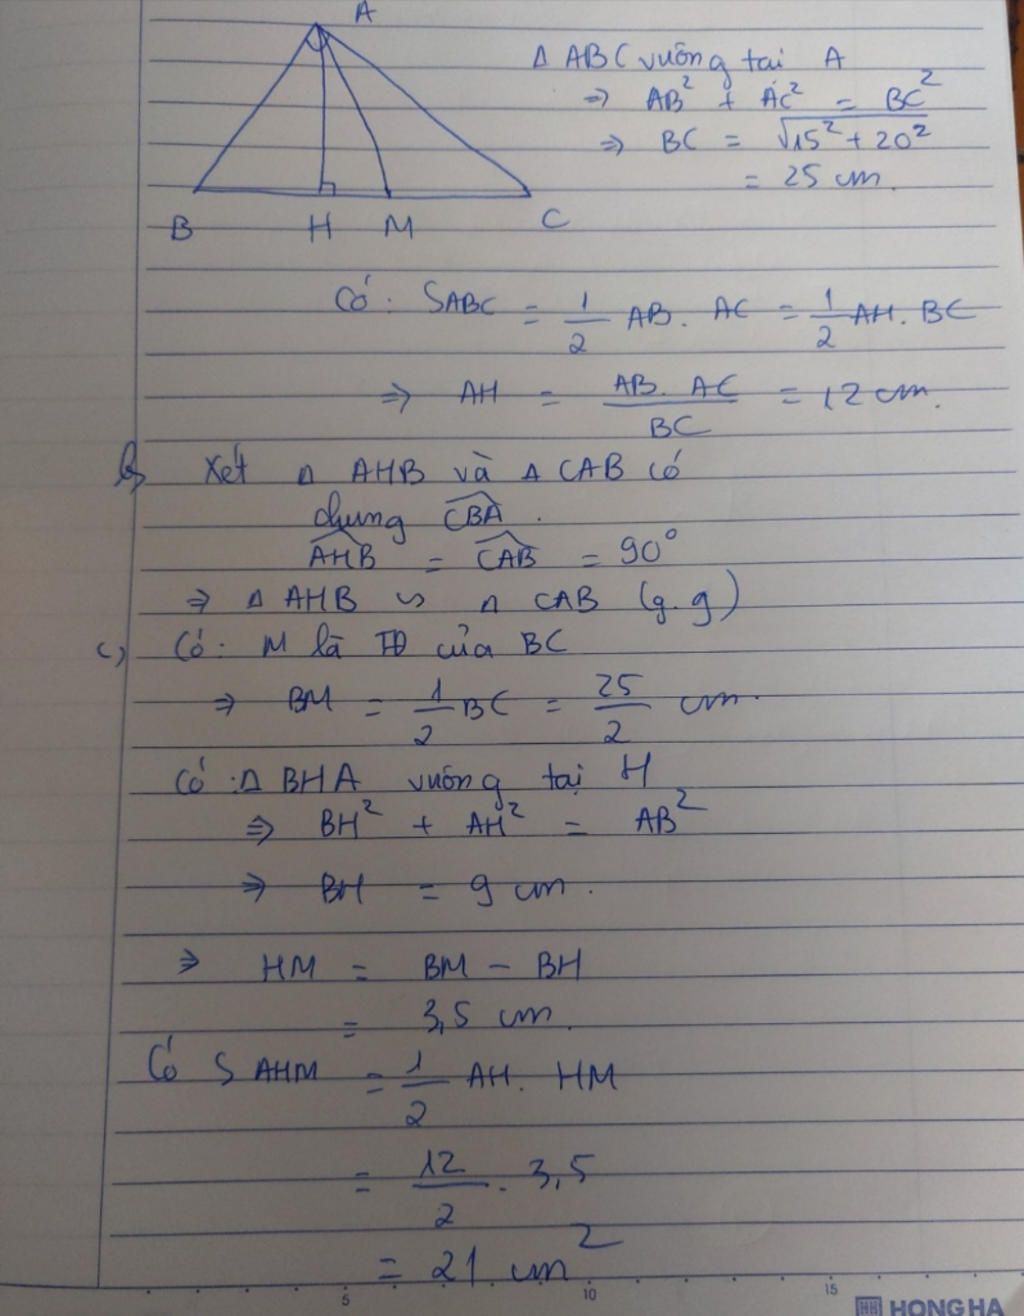 A
B H M C
Δ ABC vuông tại A
⇒ AB² + AC² = BC²
⇒ BC = √15² + 20²
= 25 cm.
Có: SABC = 1/2 AB. AC = 1/2 AH. BC
⇒ AH = AB. AC / BC = 12 cm.
b, Xét Δ AHB và Δ CAB có
chung CBA.
AHB = CAB = 90°
⇒ Δ AHB ∽ Δ CAB (g.g)
c, Có: M là TĐ của BC
⇒ BM = 1/2 BC = 25/2 cm.
Có: Δ BHA vuông tại H
⇒ BH² + AH² = AB²
⇒ BH = 9 cm.
⇒ HM = BM - BH
= 3,5 cm.
Có S AHM = 1/2 AH. HM
= 12/2 . 3,5
= 21 cm²
5 10 15
HH HONG HA